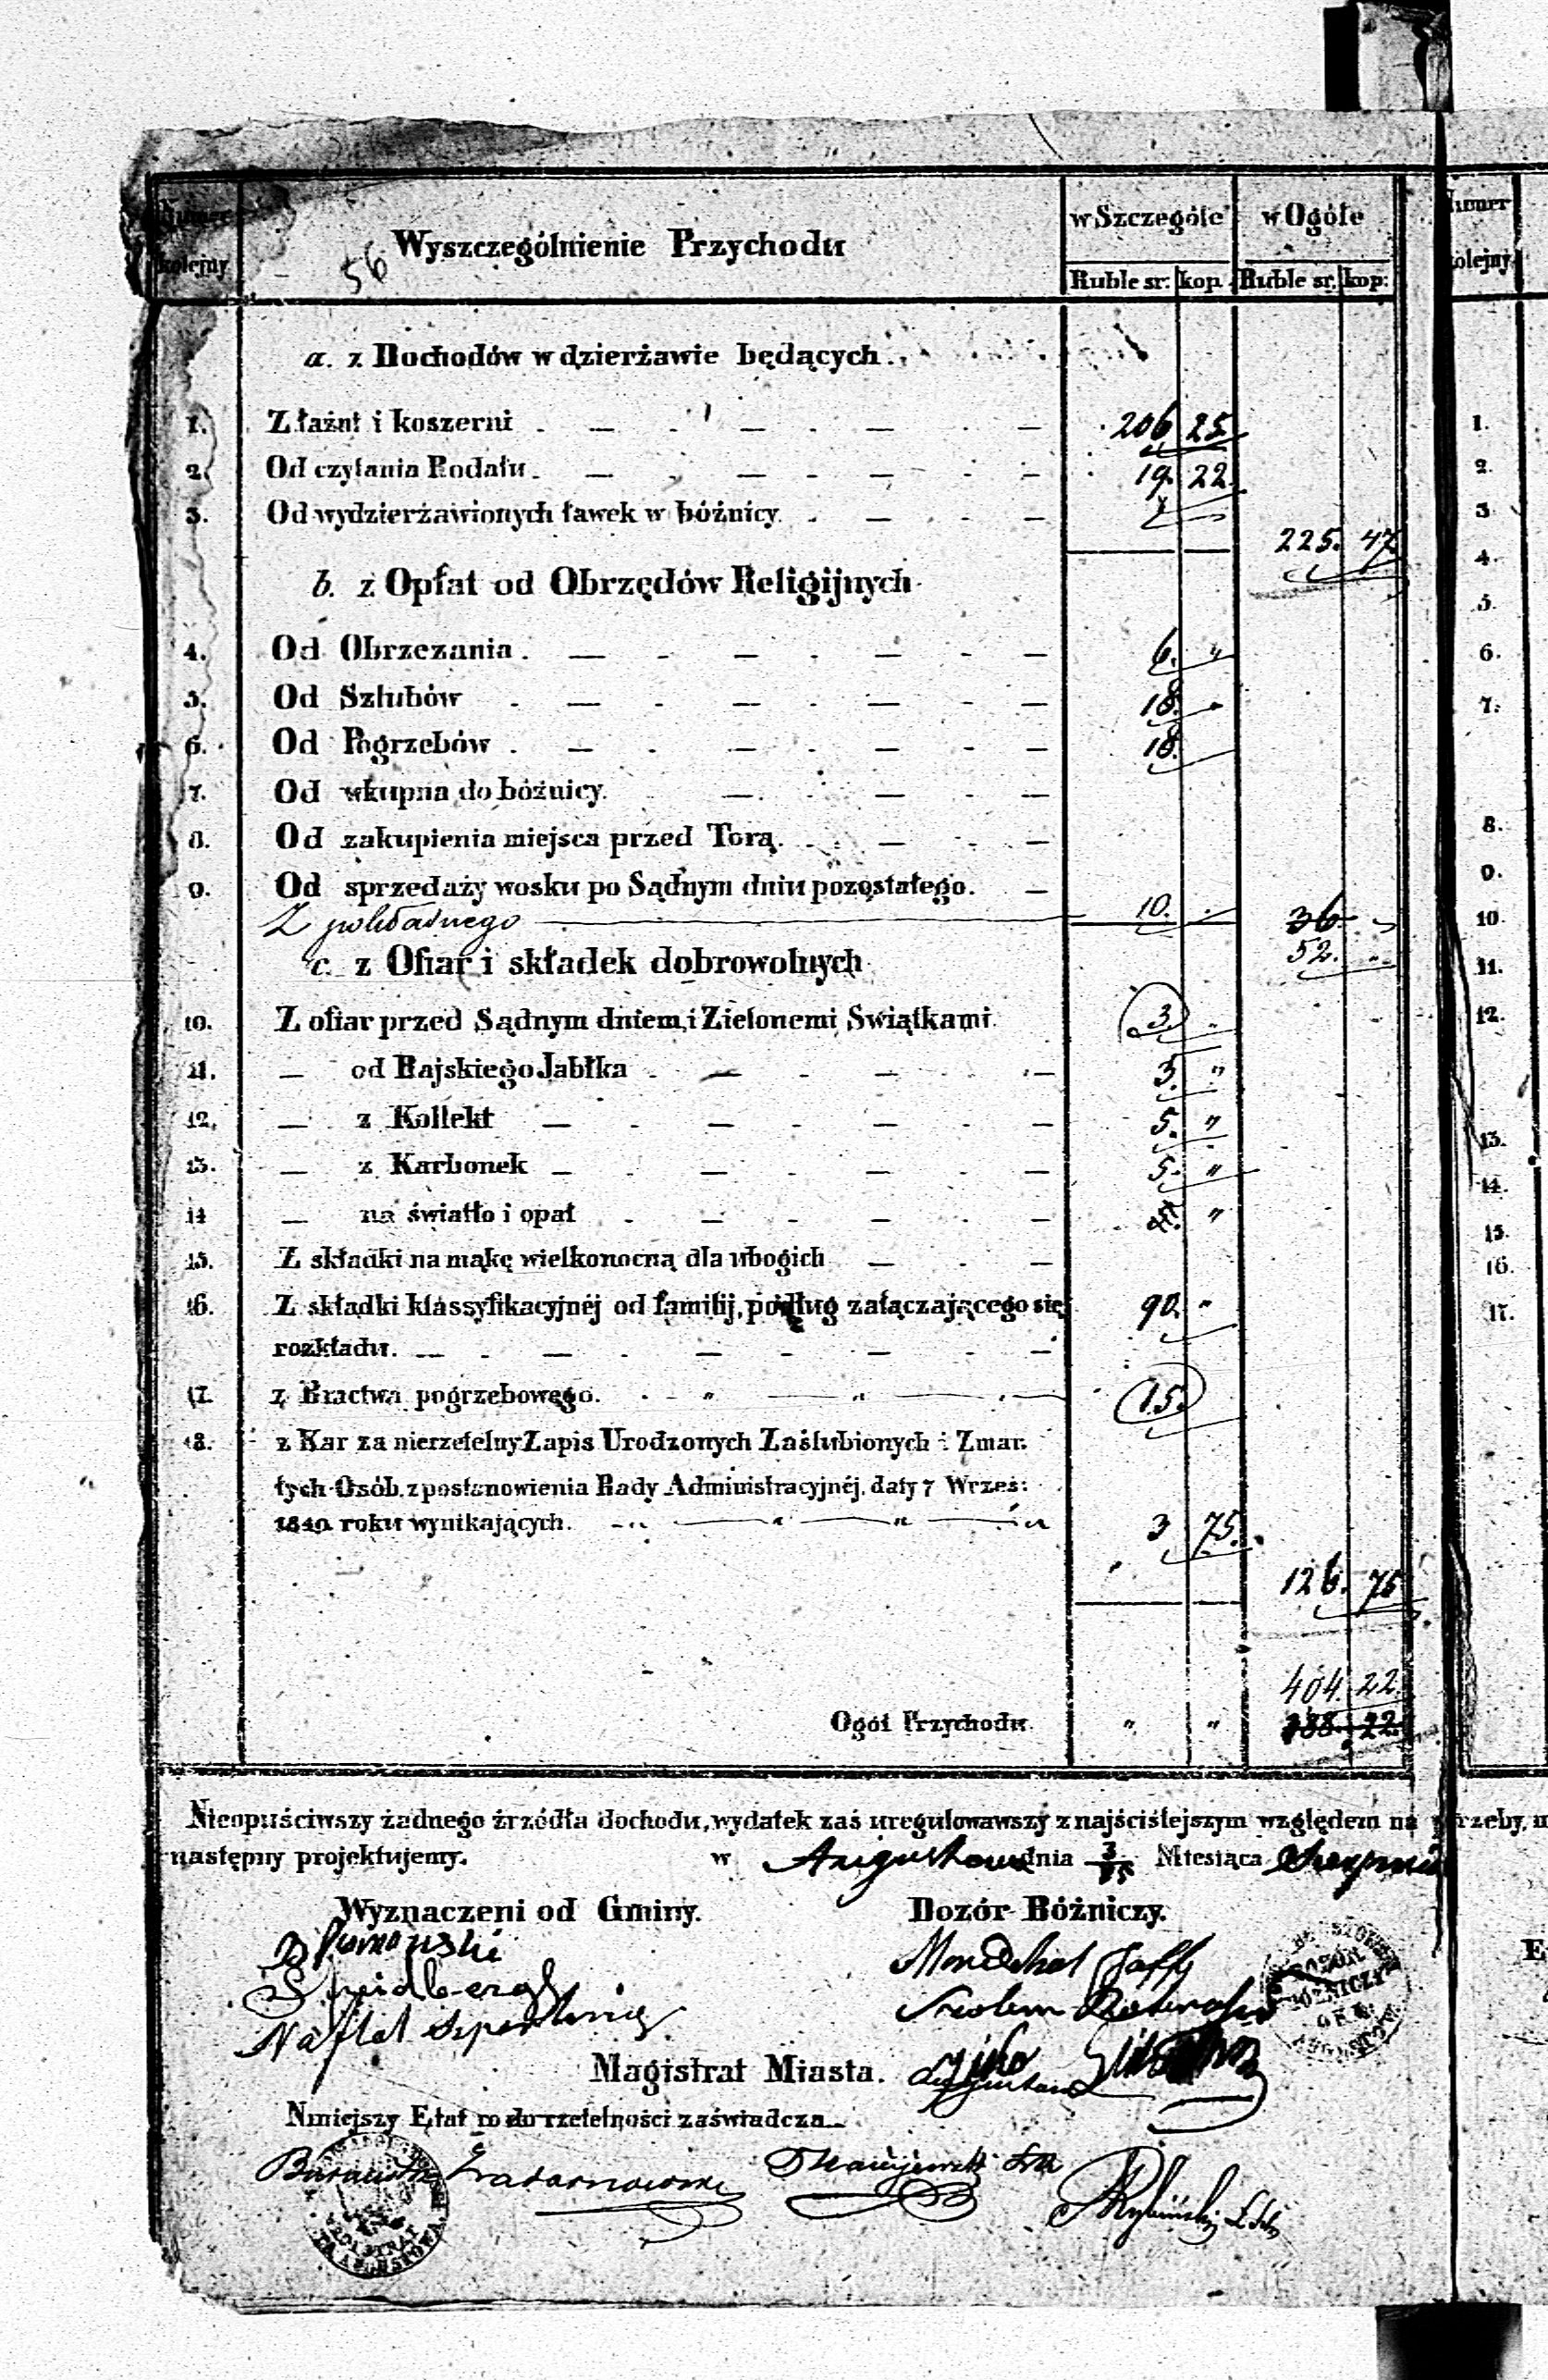 Numer kolejny
56
Wyszczególnienie Przychodu
w Szczególe
w Ogóle
Numer
Ruble sr. kop. Ruble sr. kop:
kolejny
a. z Dochodów w dzierżawie będących.
1. Z łaźni i koszerni 206 25 1.
2. Od czytania Rodału 19. 22 2.
3. Od wydzierżawionych ławek w bóźnicy. 3
225. 47 4.
b. z Opłat od Obrzędów Religijnych
5.
4. Od Obrzezania. 6. " 6.
5. Od Szlubów 18. 7.
6. Od Pogrzebów 18.
7. Od wkupna do bóżnicy.
8. Od zakupienia miejsca przed Torą. 8.
9. Od sprzedaży wosku po Sądnym dniu pozostałego. 9.
Z pokładnego 10. 36 10
52. 11.
c. z Ofiar i składek dobrowolnych
10. Z ofiar przed Sądnym dniem, i Zielonemi Swiątkami. 3. 12.
11. — od Rajskiego Jabłka 3. "
12. — z Kollekt 5. " 13.
13. — z Karbonek 5. "
14 — na światło i opał " 14.
15. Z składki na mąkę wielkonocną dla ubogich 15.
16. Z składki klassyfikacyjnéj od familij, podług załączającego się 90. " 16.
rozkładu. 17.
17. z Bractwa pogrzebowego. 15.
18. z Kar za nierzetelny Zapis Urodzonych Zaślubionych i Zmar-
łych Osób. z postanowienia Rady Administracyjnéj, daty 7 Wrześ:
1840 roku wynikających. 3 75.
126. 75
404. 22.
Ogół Przychodu. " " 388. 22.
Nieopuściwszy żadnego źrzódła dochodu, wydatek zaś uregulowawszy z najściślejszym względem na
następny projektujemy. w Augustowie dnia 3/15 Miesiąca Sierpnia
Wyznaczeni od Gminy. Dozór Bóżniczy.
Mordchel Jaffy
Magistrat Miasta.
Niniejszy Etat co do rzetelności zaświadcza